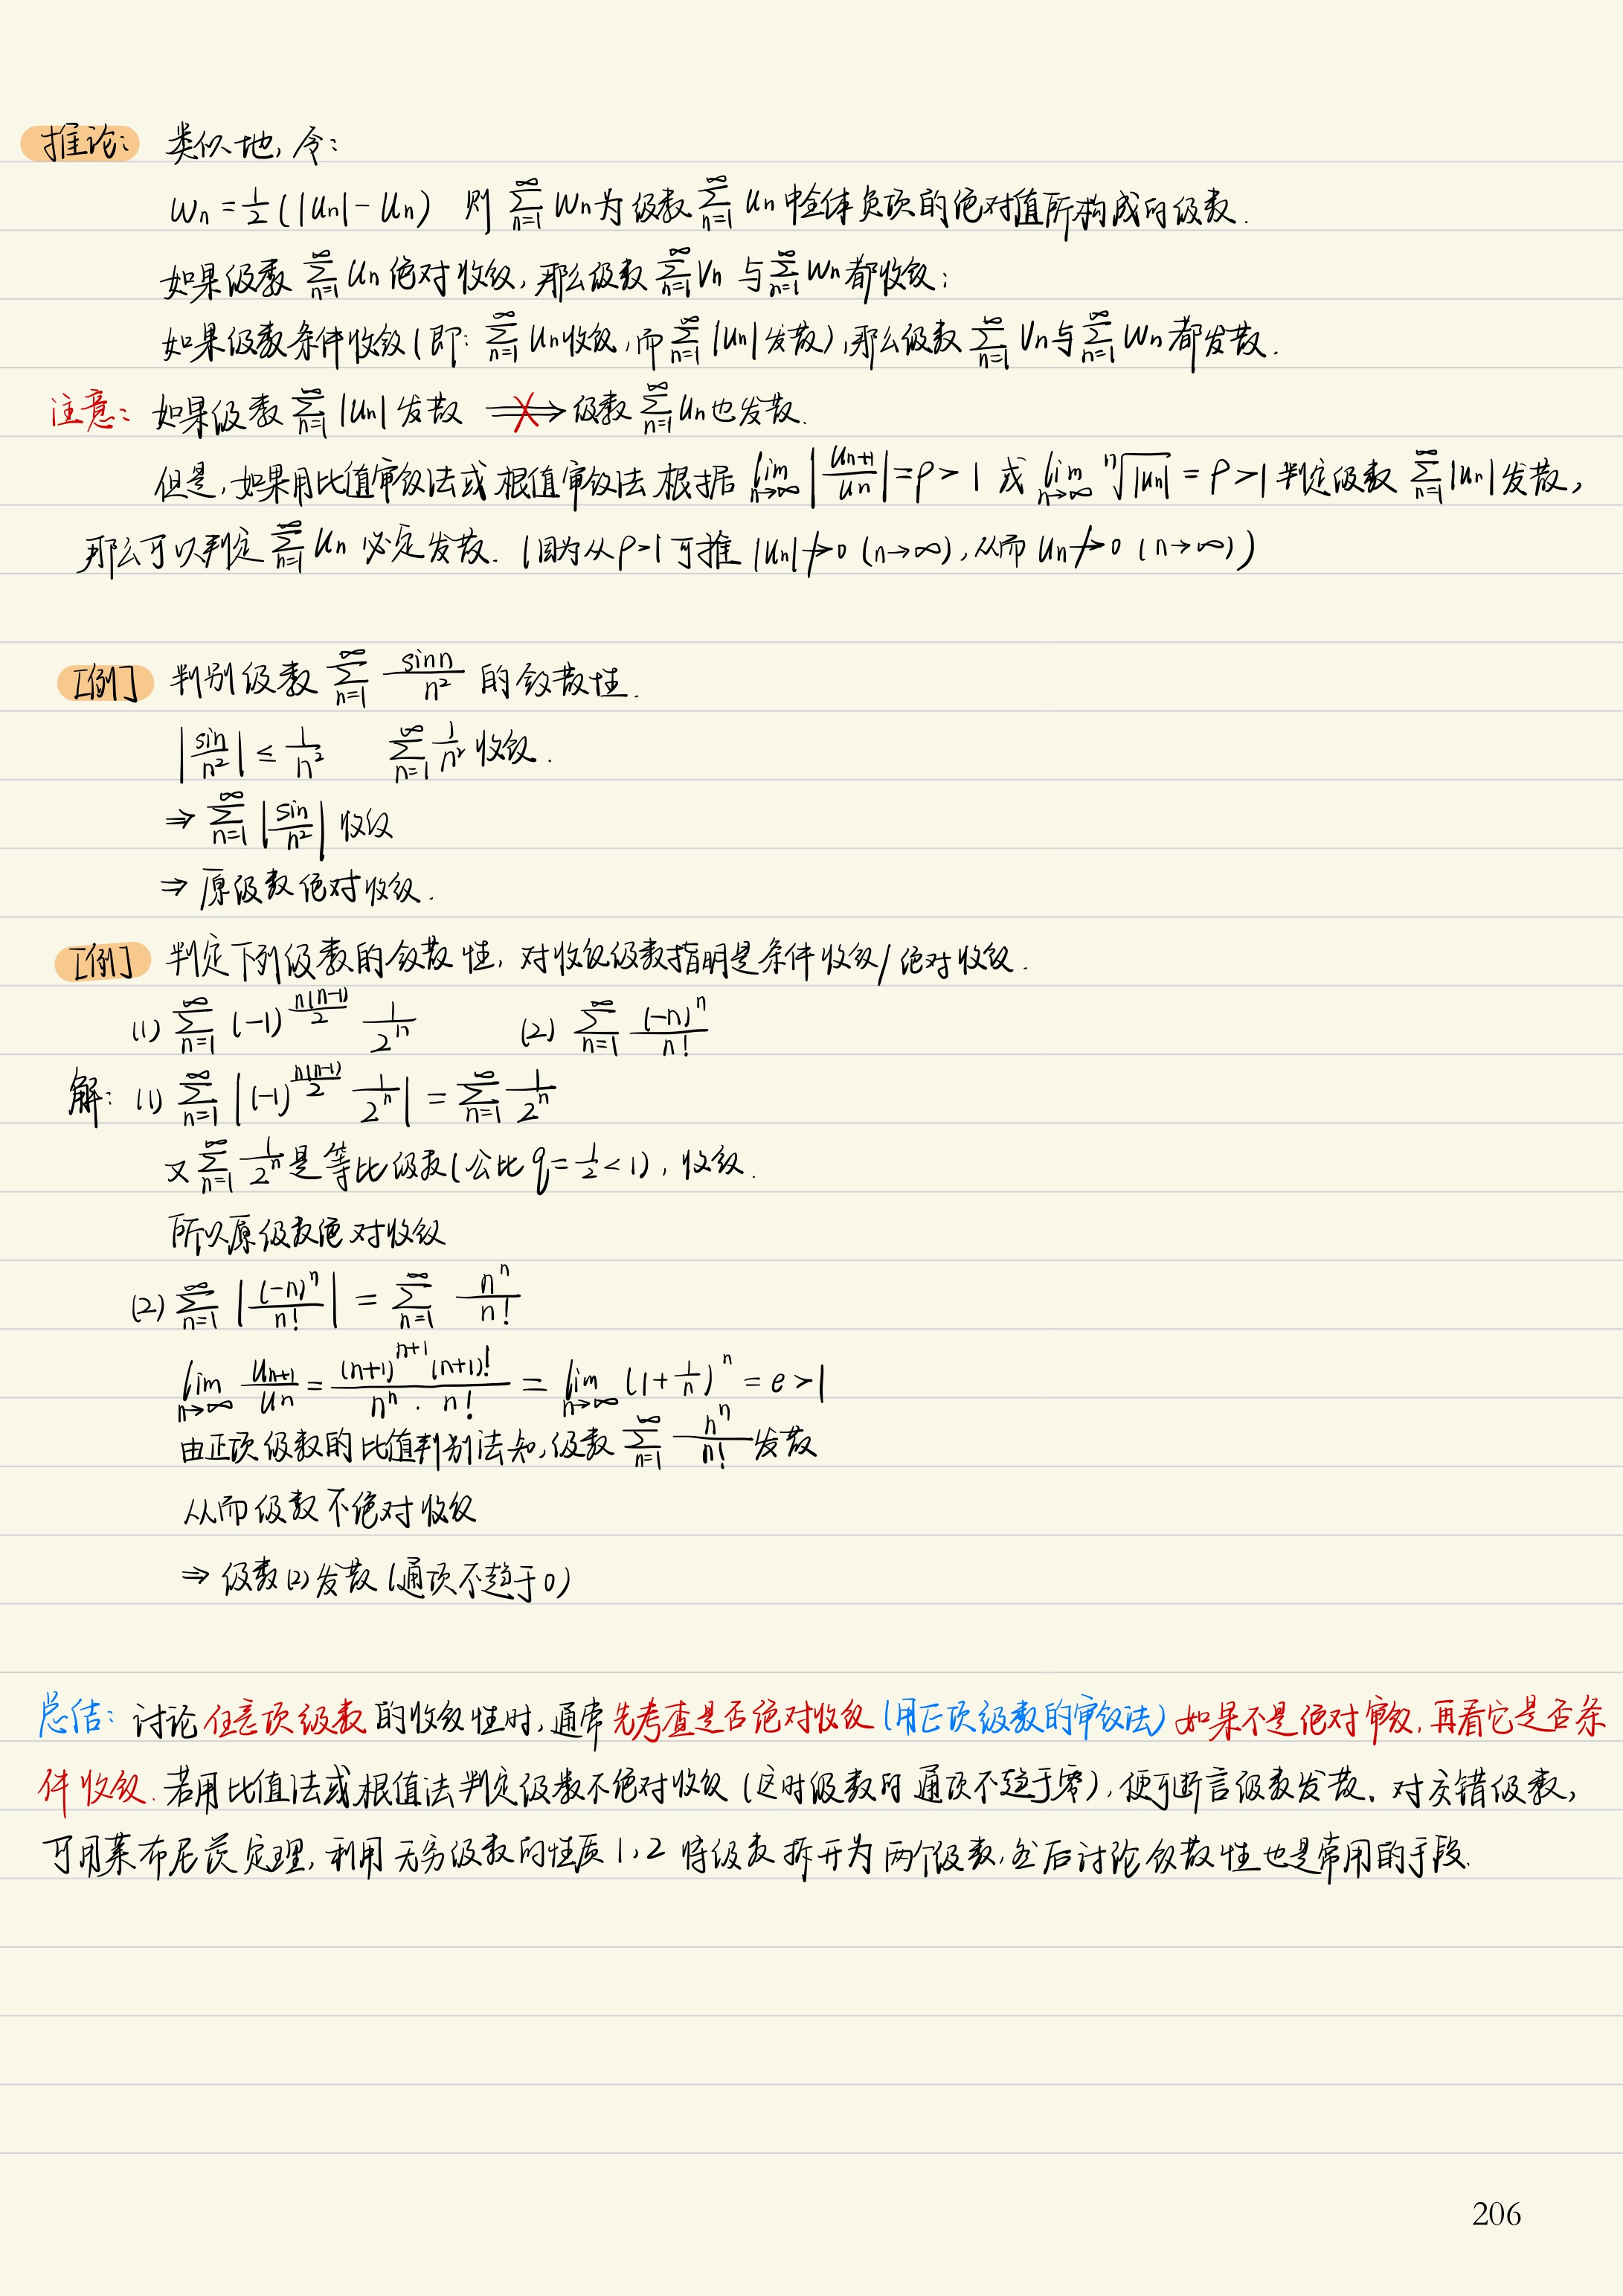 推论: 类似地,令:
Wn = 1/2 (|Un| - Un) 则 ∑_{n=1}^∞ Wn为级数 ∑_{n=1}^∞ Un 中全体负项的绝对值所构成的级数.
如果级数 ∑_{n=1}^∞ Un 绝对收敛,那么级数 ∑_{n=1}^∞ Vn 与 ∑_{n=1}^∞ Wn 都收敛;
如果级数条件收敛(即: ∑_{n=1}^∞ Un收敛,而 ∑_{n=1}^∞ |Un| 发散),那么级数 ∑_{n=1}^∞ Vn与 ∑_{n=1}^∞ Wn 都发散.
注意: 如果级数 ∑_{n=1}^∞ |Un| 发散 ⇏ 级数 ∑_{n=1}^∞ Un也发散.
但是,如果用比值审敛法或根值审敛法根据 lim_{n→∞} |Un+1/Un| = ρ > 1 或 lim_{n→∞} ⁿ√|Un| = ρ > 1 判定级数 ∑_{n=1}^∞ |Un| 发散,
那么可以判定 ∑_{n=1}^∞ Un 必定发散. (因为从ρ>1可推 |Un|↛0 (n→∞),从而 Un↛0 (n→∞))
[例] 判别级数 ∑_{n=1}^∞ sinn/n² 的敛散性.
|sin/n²| ≤ 1/n² ∑_{n=1}^∞ 1/n² 收敛.
⇒ ∑_{n=1}^∞ |sin/n²| 收敛
⇒ 原级数绝对收敛.
[例] 判定下列级数的敛散性,对收敛级数指明是条件收敛/绝对收敛.
(1) ∑_{n=1}^∞ (-1)^{n(n-1)/2} 1/2^n (2) ∑_{n=1}^∞ (-n)^n/n!
解: (1) ∑_{n=1}^∞ |(-1)^{n(n-1)/2} 1/2^n| = ∑_{n=1}^∞ 1/2^n
又 ∑_{n=1}^∞ 1/2^n 是等比级数(公比 q = 1/2 < 1), 收敛.
所以原级数绝对收敛
(2) ∑_{n=1}^∞ |(-n)^n/n!| = ∑_{n=1}^∞ n^n/n!
lim_{n→∞} Un+1/Un = (n+1)^{n+1} (n+1)!/n^n · n! = lim_{n→∞} (1 + 1/n)^n = e > 1
由正项级数的比值判别法知,级数 ∑_{n=1}^∞ n^n/n! 发散
从而级数不绝对收敛
⇒ 级数(2)发散(通项不趋于0)
总结: 讨论任意项级数的收敛性时,通常先考查是否绝对收敛(用正项级数的审敛法)如果不是绝对审敛,再看它是否条
件收敛.若用比值法或根值法判定级数不绝对收敛(这时级数的通项不趋于零),便可断言级数发散.对交错级数,
可用莱布尼茨定理,利用无穷级数的性质1,2将级数拆开为两个级数,然后讨论敛散性也是常用的手段.
206